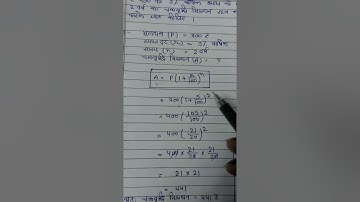 2 वर्ष का चक्रवृद्धि मिश्रधन ज्ञात
मूलधन (P) = 400 ₹
ब्याज दर (r) = 5% वार्षिक
समय (n) = 2 वर्ष
चक्रवृद्धि मिश्रधन (A) = ?
A = P(1 + r/100)^n
= 400 (1 + 5/100)^2
= 400 (105/100)^2
= 400 (21/20)^2
= 400 × 21/20 × 21/20
= 21 × 21
= 441
चक्रवृद्धि मिश्रधन = 441 ₹